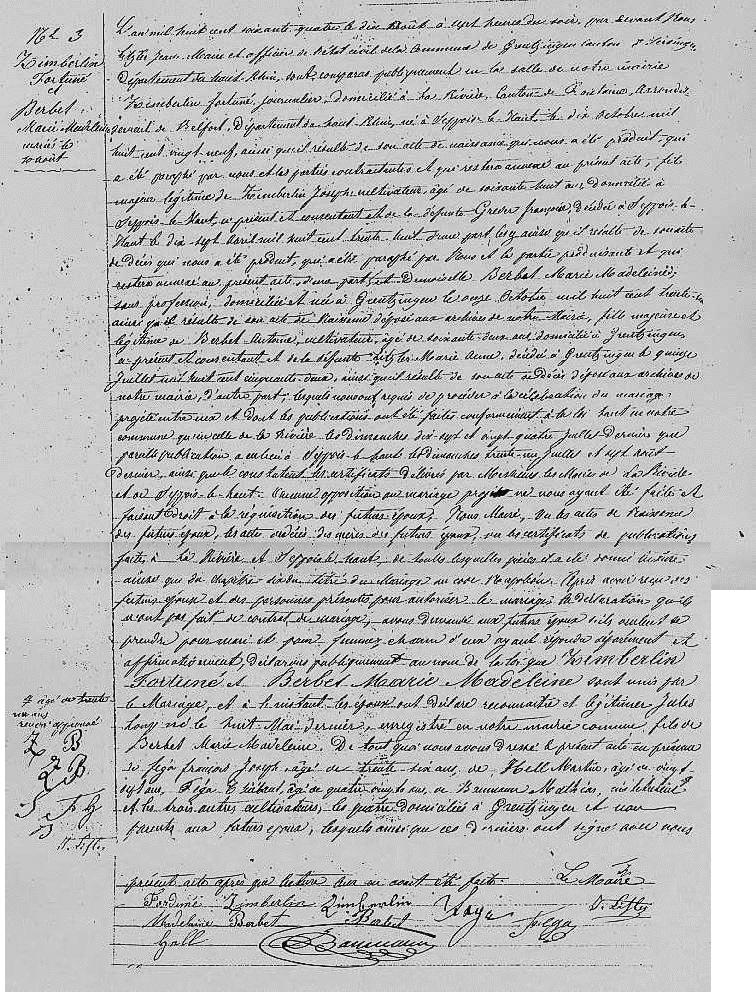 N° 3
Zimberlin
Fortuné
et
Berbet
Marie Madeleine
mariés le
10 août
L'an mil huit cent soixante quatre le dix août à sept heures du soir, par devant Nous
Jean, Maire et officier de l'état civil de la Commune de Grentzingen canton d'
Département du haut-Rhin, sont comparus publiquement en la salle de notre mairie
Zimberlin Fortuné, journalier, domicilié à La Rivière, Canton de Fontaine, Arrondis
sement de Belfort, Département du haut-Rhin, né à Seppois le Haut, le dix Octobre mil
huit cent vingt neuf, ainsi qu'il résulte de son acte de naissance qui nous a été produit, qui
a été paraphé par nous et les parties contractantes et qui restera annexé au présent acte, fils
majeur légitime de Zimberlin Joseph cultivateur, âgé de soixante huit ans, domicilié à
Seppois le Haut, ci présent et consentant et de la défunte Greder françoise, décédée à Seppois-le-
Haut le dix sept avril mil huit cent trente huit d'une part ainsi qu'il résulte de
de décès qui nous a été produit, qui a été paraphé par Nous et la partie produisante et qui
restera annexé au présent acte, d'une part, et Demoiselle Berbet Marie Madeleine,
sans profession, domiciliée et née à Grentzingen le onze Octobre mil huit cent trente-
ainsi qu'il résulte de son acte de Naissance déposé aux archives de notre Mairie, fille majeure et
légitime de Berbet Antoine, cultivateur, âgé de soixante-deux ans domicilié à Grentzingen
ci présent et consentant et de la défunte Marie Anne, décédée à Grentzingen le quinze
Juillet mil huit cent cinquante deux, ainsi qu'il résulte de son acte de Décès déposé aux archives de
notre mairie, d'autre part; lesquels nous ont requis de procéder à la célébration du mariage
projeté entre eux et dont les publications ont été faites conformément à la loi tant en notre
commune qu'en celle de la Rivière les dimanches dix-sept et vingt-quatre Juillet dernier que
pareille publication a eu lieu à Seppois-le-haut les dimanches trente-un Juillet et sept août
dernier, ainsi que le constatent les certificats délivrés par Messieurs les Maires de La Rivière
et de Seppois-le-haut. Aucune opposition au mariage projeté ne nous ayant été faite et
faisant droit à la réquisition des futurs époux, Nous Maire, vu les actes de Naissance
des futurs époux, les actes de décès des mères des futurs époux, vu les certificats de publications
faites à La Rivière et Seppois le haut, de toutes lesquelles pièces il a été donné lecture
ainsi que du chapitre six du titre du Mariage du code Napoléon. Après avoir reçu des
futurs époux et des personnes présentes pour autoriser le mariage, la déclaration qu'ils
n'ont pas fait de contrat de mariage, avons demandé aux futurs époux s'ils veulent se
prendre pour mari et pour femme, chacun d'eux ayant répondu séparément et
affirmativement déclarons publiquement au nom de la loi que Zimberlin
Fortuné et Berbet Marie Madeleine sont unis par
le Mariage, et à l'instant les époux ont déclaré reconnaître et légitimer Jules
né le huit Mai dernier, enregistré en notre mairie comme fils de
Berbet Marie Madeleine. De tout quoi nous avons dressé le présent acte en présence
de françois Joseph, âgé de trente six ans, de Hell Martin, âgé de vingt
sept ans, âgé de quatre vingts ans, de Baumann Mathias, instituteur
et les trois autres cultivateurs, les quatre domiciliés à Grentzingen et non
parents aux futurs époux, lesquels ainsi que ces derniers ont signé avec nous
âgé de trente
un ans
renvoi approuvé
Z B
Z B
présent acte après que lecture leur en avait été faite.
Le Maire
Fortuné Zimberlin Zimberlin
Madelaine Berbet Berbet
Hell Baumann